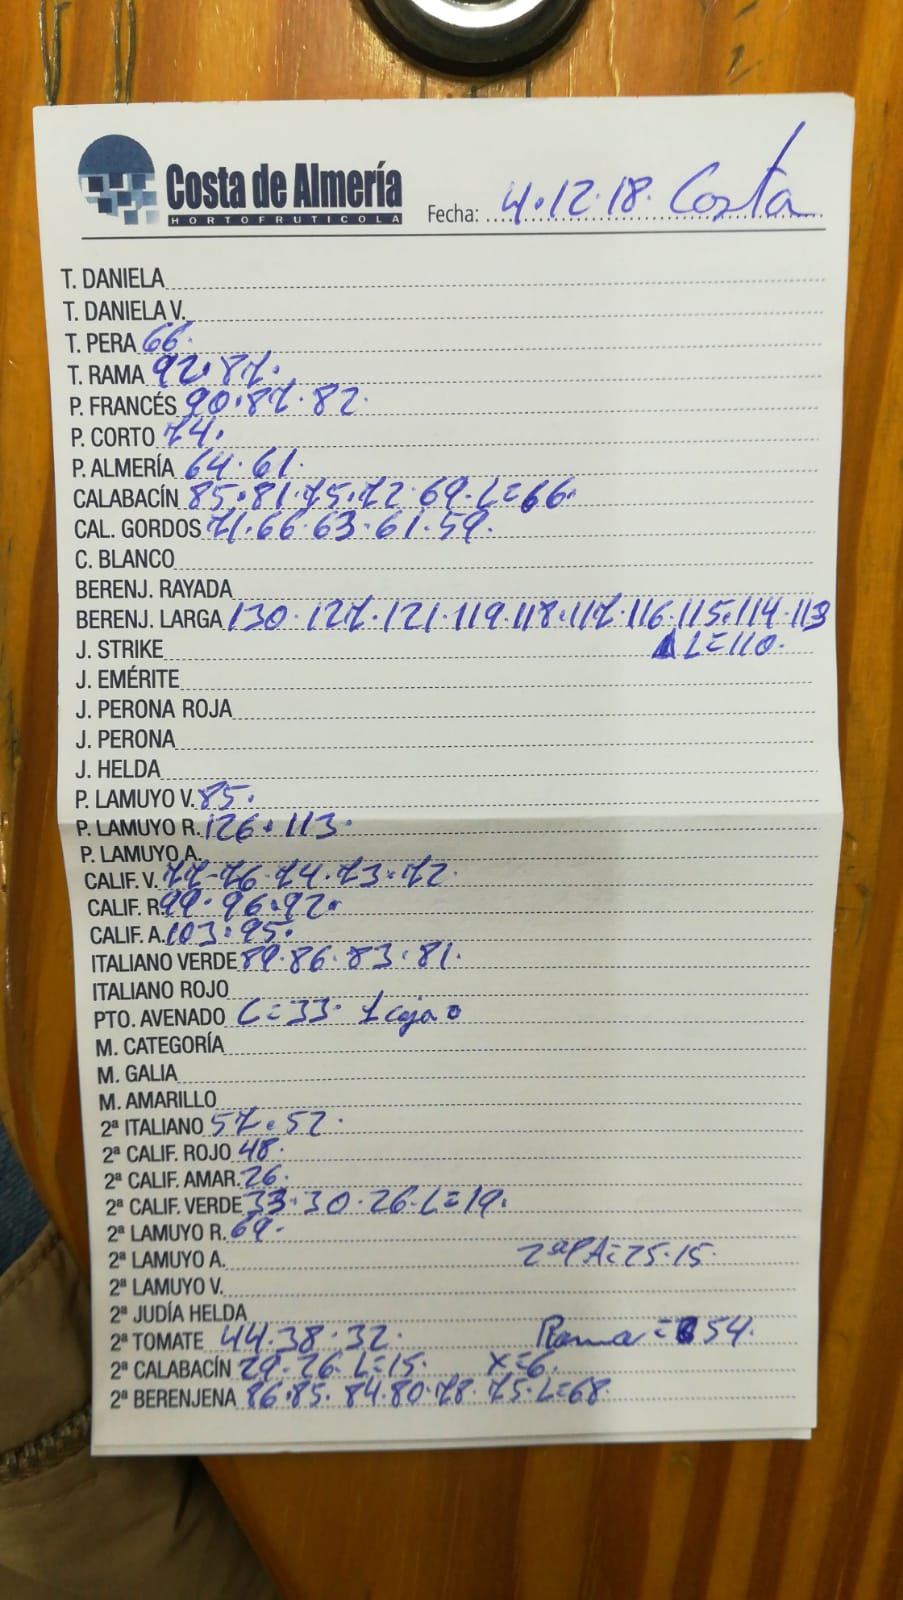 Costa de Almería
HORTOFRUTICOLA
Fecha: 4.12.18. Costa
T. DANIELA
T. DANIELA V.
T. PERA 66.
T. RAMA 92.87.
P. FRANCÉS 90.87.82.
P. CORTO 74.
P. ALMERÍA 64.61.
CALABACÍN 85.81.75.72.69.L=66.
CAL. GORDOS 71.66.63.61.59.
C. BLANCO
BERENJ. RAYADA
BERENJ. LARGA 130.127.121.119.118.117.116.115.114.113
J. STRIKE L=110.
J. EMÉRITE
J. PERONA ROJA
J. PERONA
J. HELDA
P. LAMUYO V. 85.
P. LAMUYO R. 126.113.
P. LAMUYO A.
CALIF. V. 77-76.74.73.72.
CALIF. R. 99.96.92.
CALIF. A. 103.95.
ITALIANO VERDE 89.86.83.81.
ITALIANO ROJO
PTO. AVENADO C=33. 1 caja
M. CATEGORÍA
M. GALIA
M. AMARILLO
2ª ITALIANO 57.52.
2ª CALIF. ROJO 48.
2ª CALIF. AMAR. 26.
2ª CALIF. VERDE 33.30.26.L=19.
2ª LAMUYO R. 69.
2ª LAMUYO A. 2ªPA=25.15.
2ª LAMUYO V.
2ª JUDÍA HELDA
2ª TOMATE 44.38.32. Rama=54.
2ª CALABACÍN 29-26.L=15. X=6.
2ª BERENJENA 86.85.84.80.78.75.L=68.